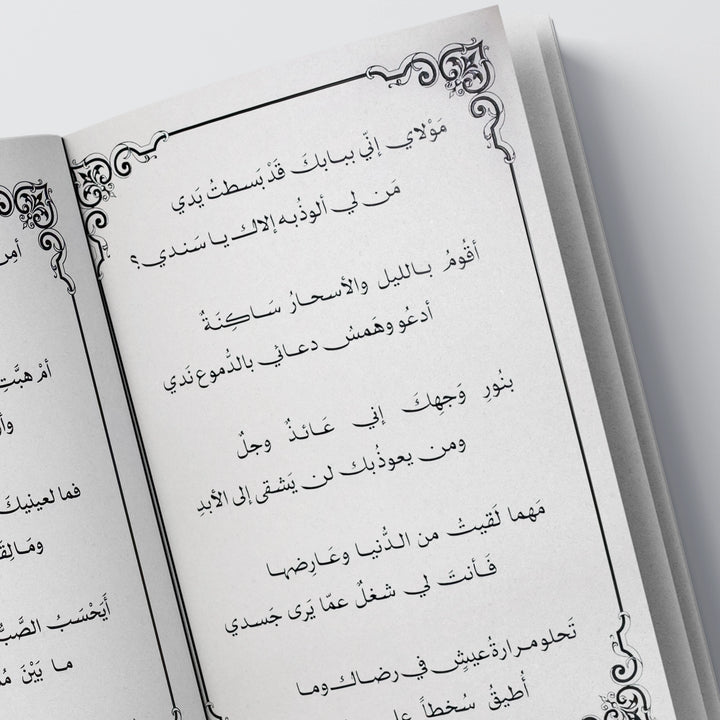 مَوْلاي إنّي ببابكَ قَدْ بَسطتُ يَدي
مَن لي ألوذُ به إلاك يا سَندي؟
أقُومُ بالليل والأسحارُ سَاكِنَةٌ
أدعُو وهَمسُ دعائي بالدُّموع نَدي
بنُورِ وَجهِكَ إني عَائذٌ وجلٌ
ومن يعوذُ بك لن يَشقى إلى الأبدِ
مَهما لَقيتُ من الدُّنيا وعَارِضها
فَأنتَ لي شغلٌ عمّا يَرى جَسدي
تَحلو مرارةُ عيشٍ في رضاك وما
أُطيقُ سُخطاً على
أمِن
أمْ هبَّتِ
وأو
فما لعينيكَ
ومَا لِقَ
أيَحْسَبُ الصَّبُّ
ما بَيْنَ مُ